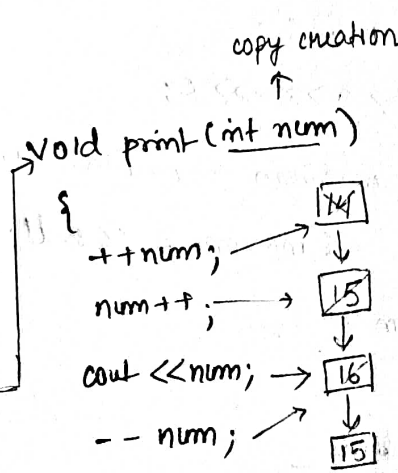 copy creation
void print (int num)
{
++num;
14
num++;
15
cout <<num;
16
-- num;
15